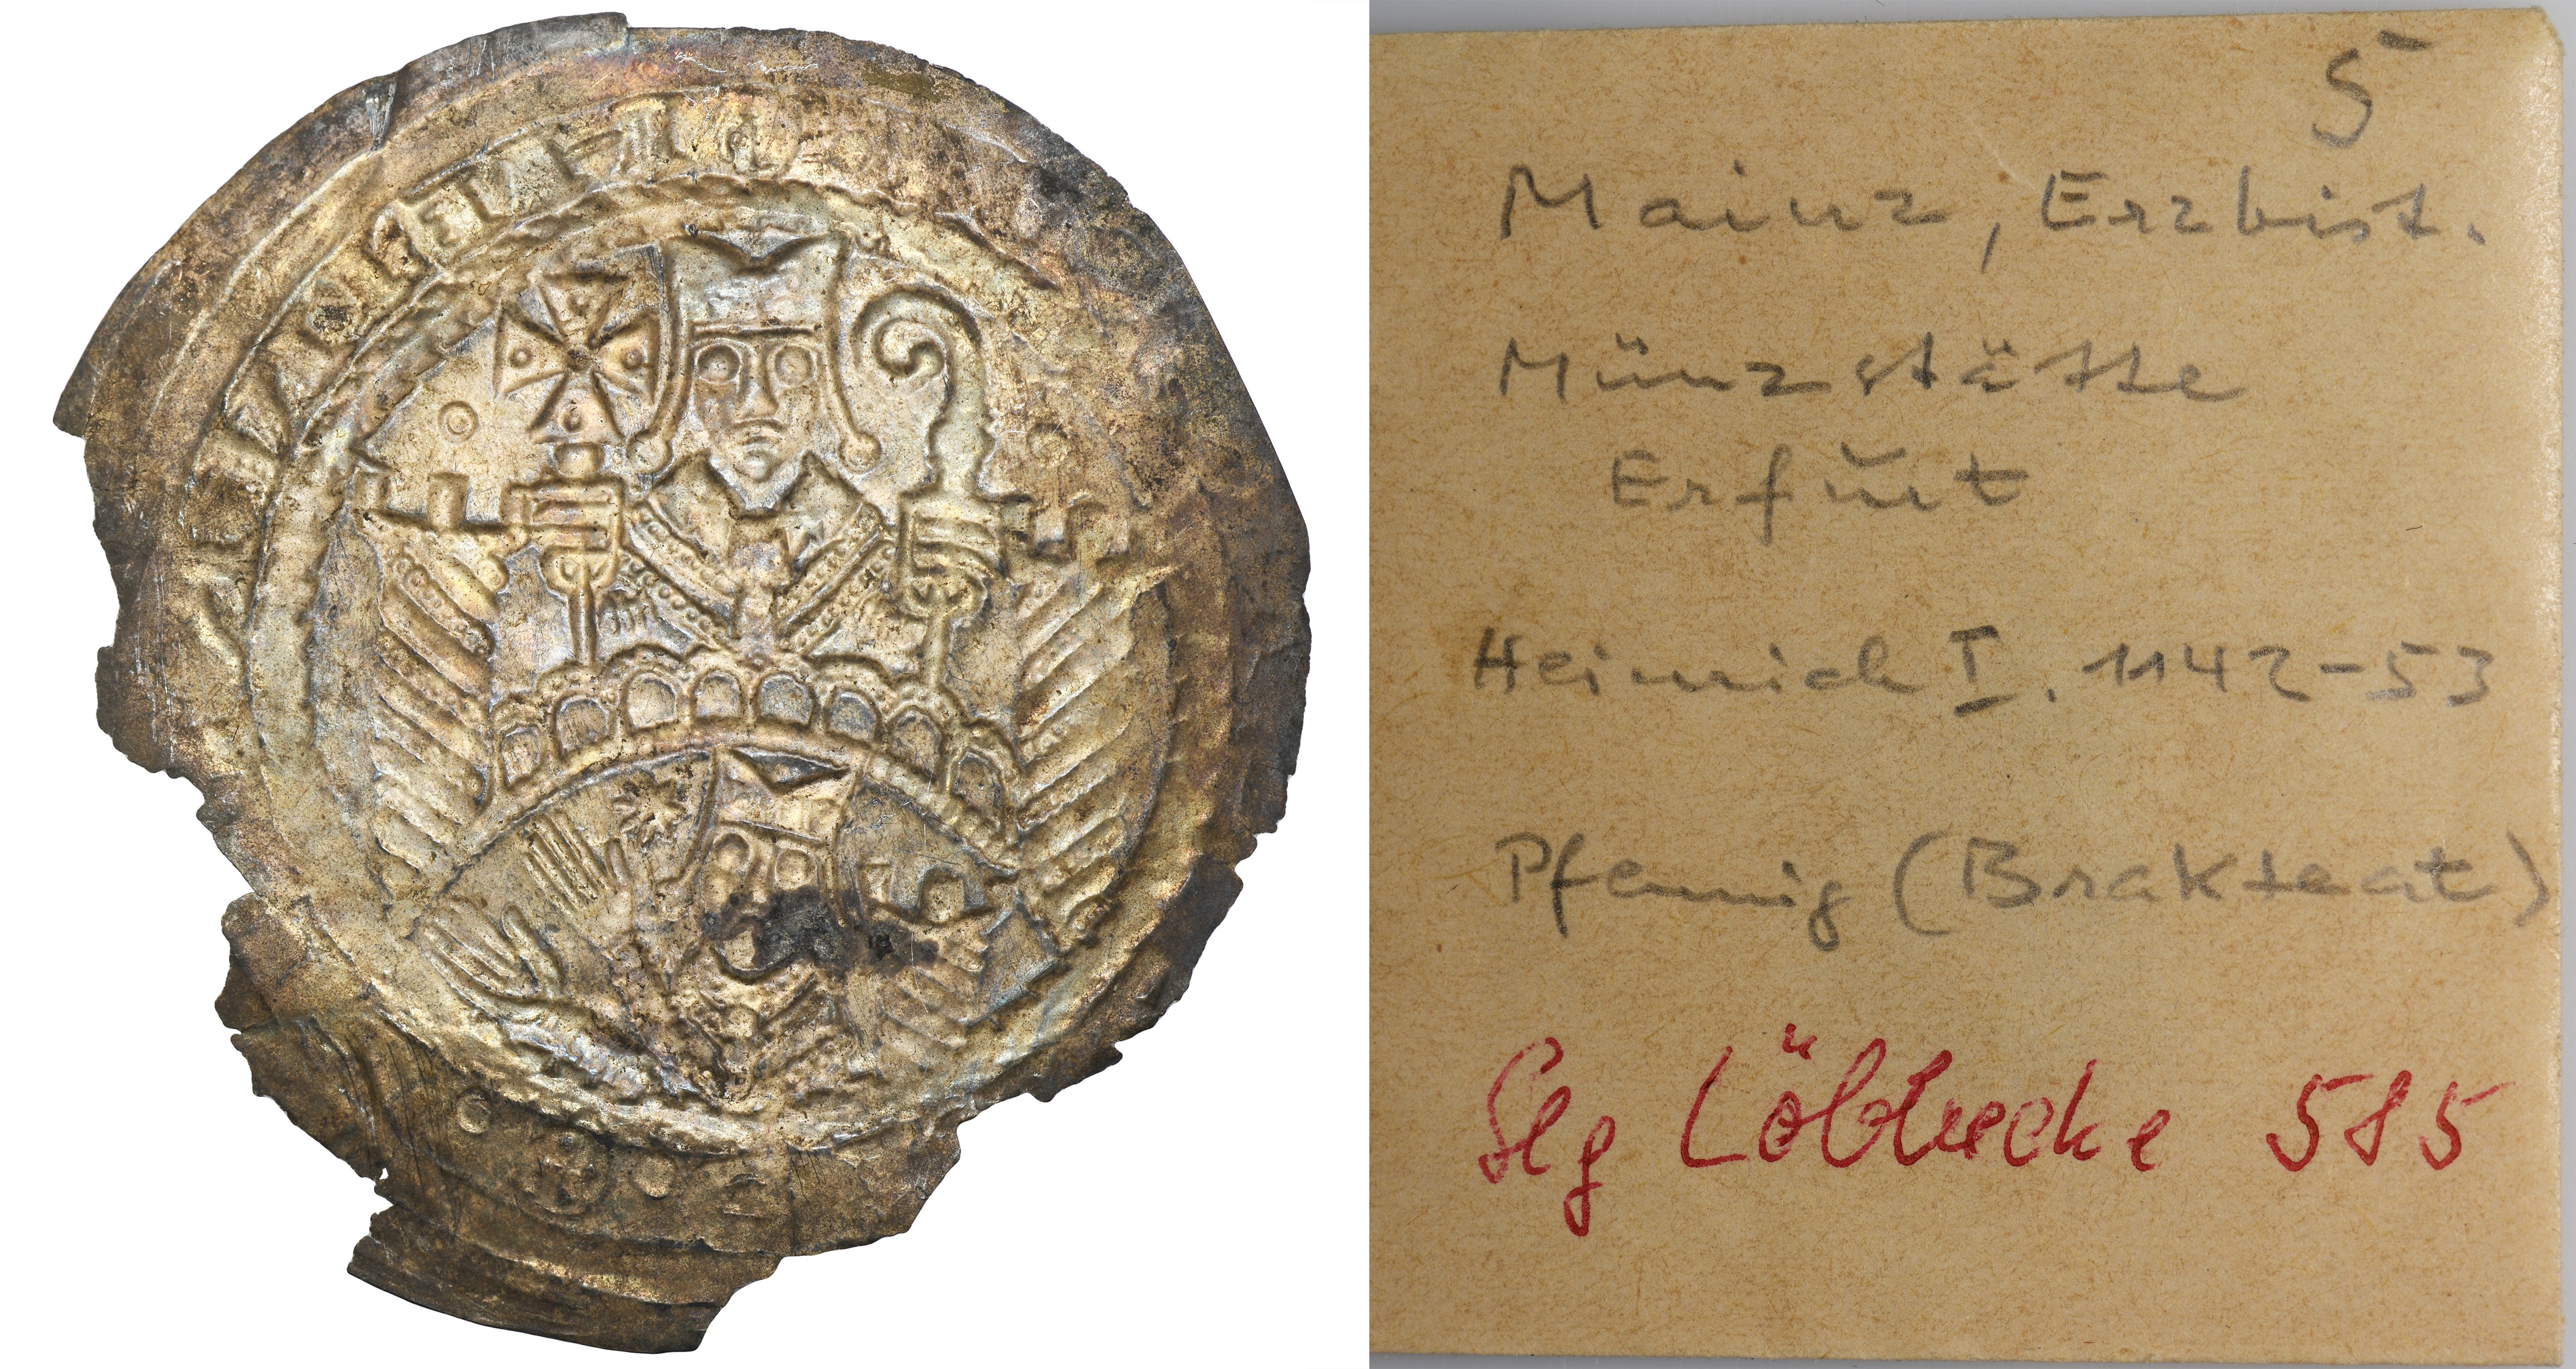 5
Mainz, Erzbist.
Münzstätte
Erfurt
Heinrich I. 1142-53
Pfennig (Brakteat)
Slg Löbbecke 585